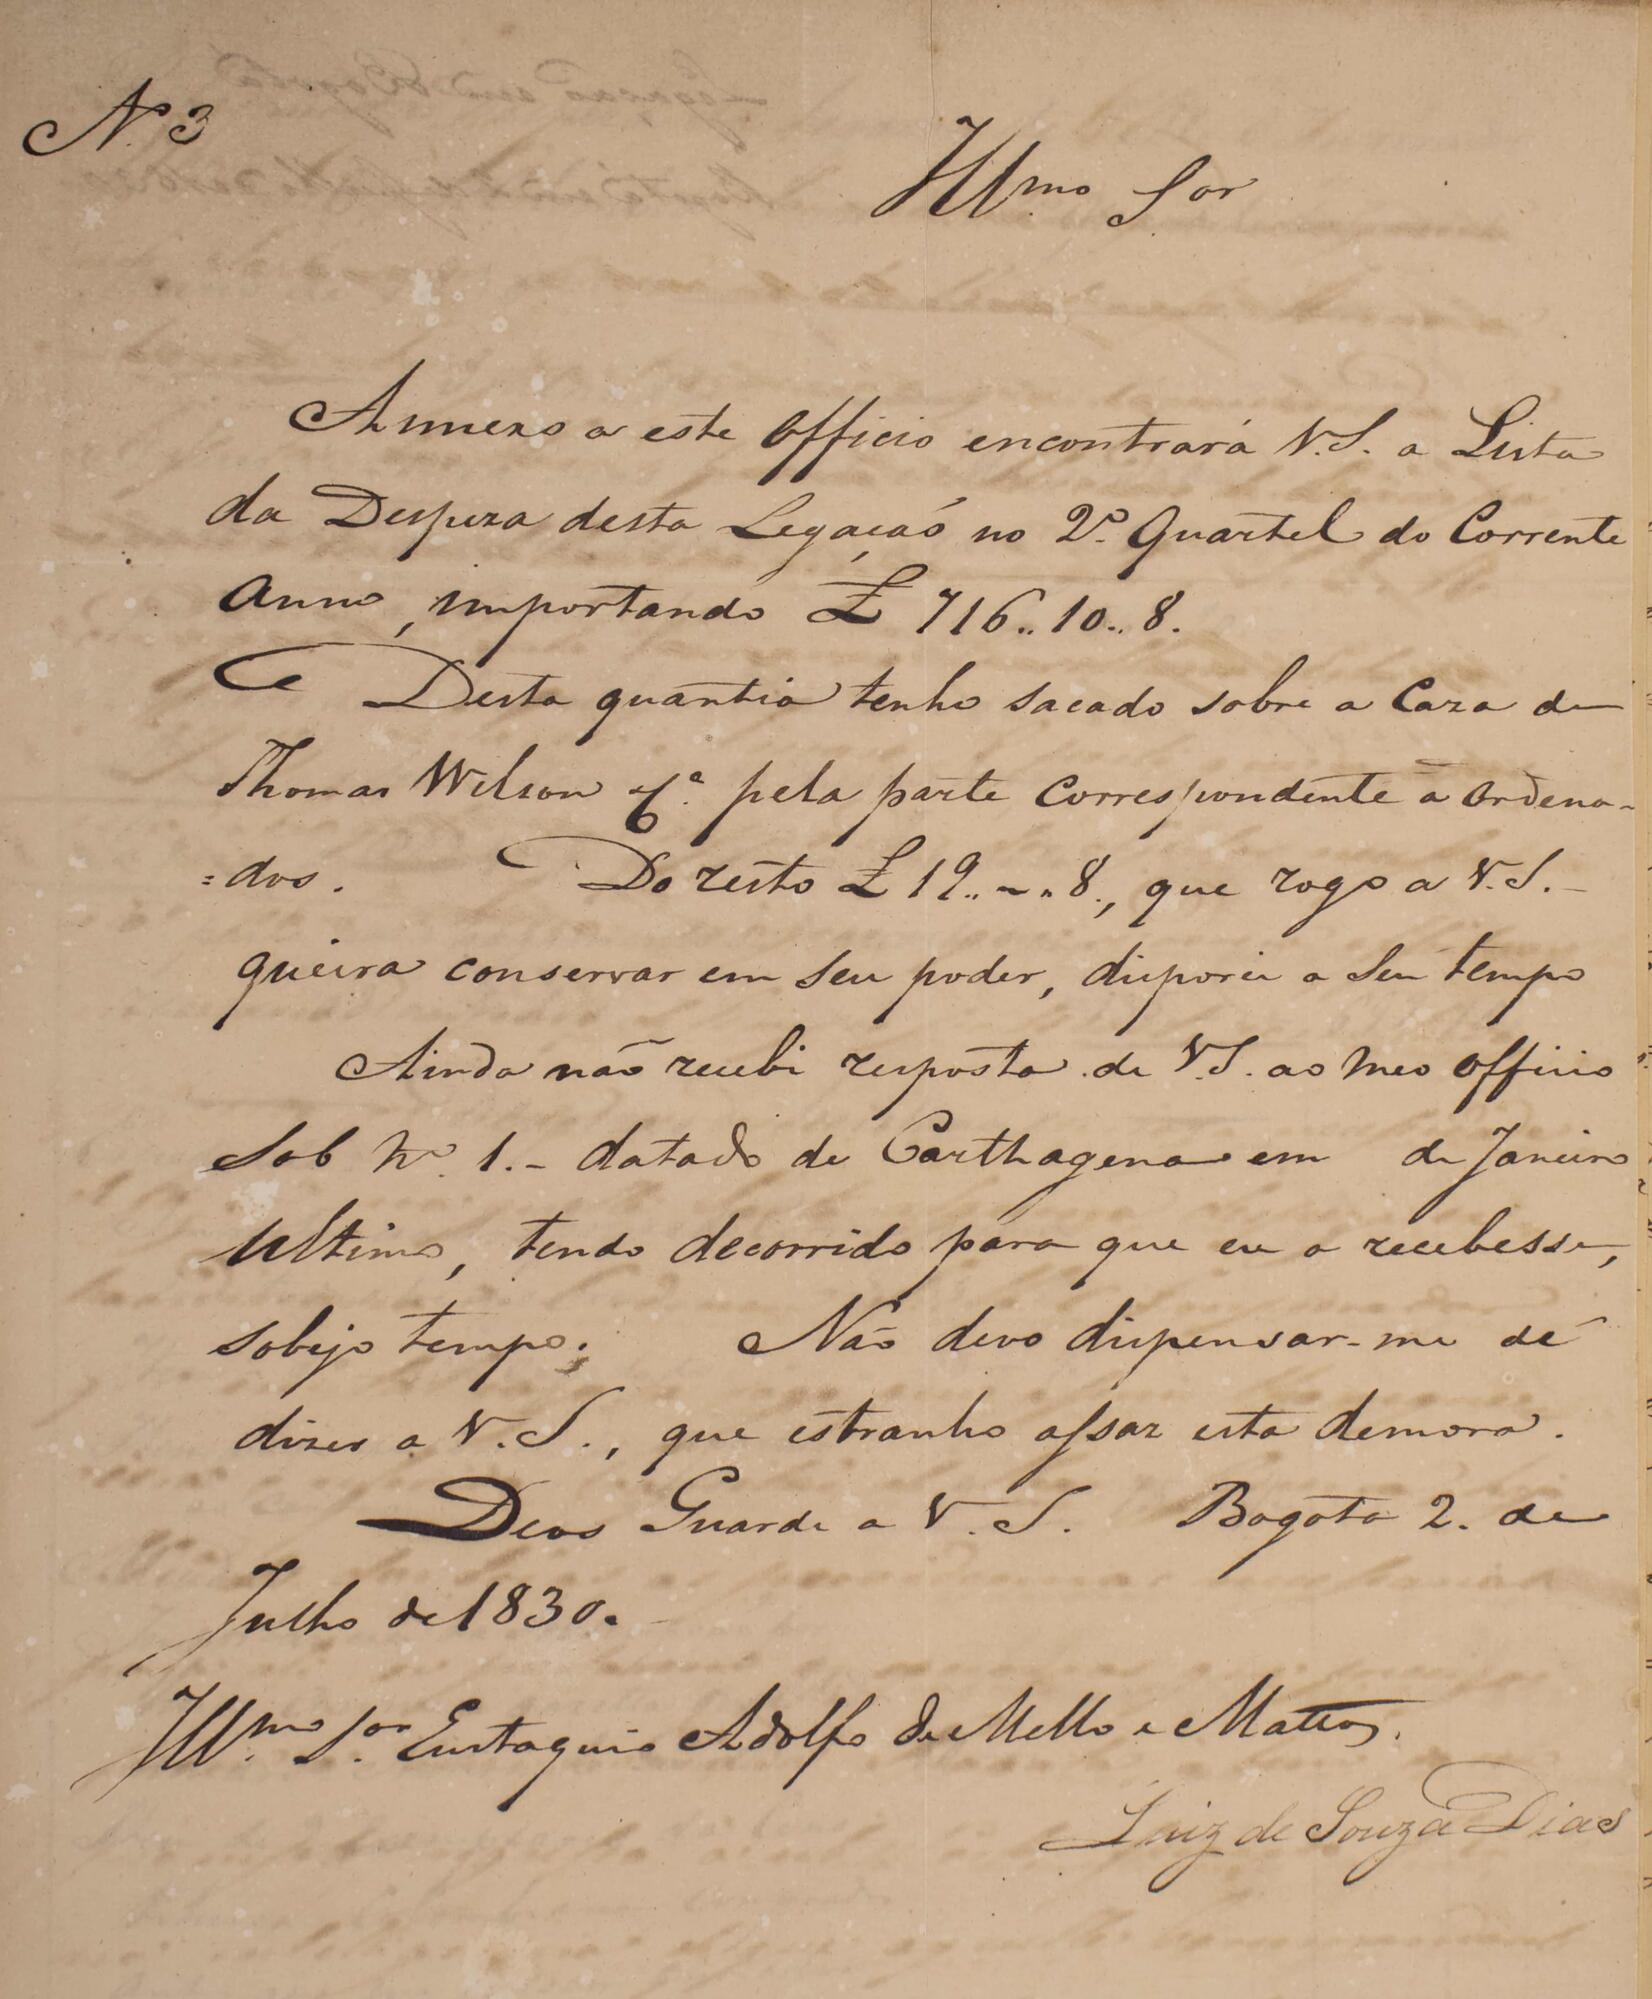 N.º 3
Illmo Sor
Annexo a este officio encontrará V.S. a Lista
da Despeza desta Legaçaõ no 2.º Quartel do Corrente
Anno, importando £ 716..10..8.
Desta quantia tenho sacado sobre a Caza de
Thomas Wilson & C.ª pela parte Correspondente a Ordena-
=dos. Do resto £ 19..~..8., que rogo a V.S.
queira conservar em seu poder, disporei a seu tempo
Ainda não recebi resposta de V.S. ao meo officio
sob N.º 1.- datado de Carthagena em de Janeiro
ultimo, tendo decorrido para que eu a recebesse,
sobejo tempo. Não devo dispensar-me de
dizer a V.S., que estranho assaz esta demora.
Deos Guarde a V.S. Bogota 2. de
Julho de 1830.
Illmo Sor Eustaquio Adolfo de Mello e Mattos.
Luiz de Souza Dias